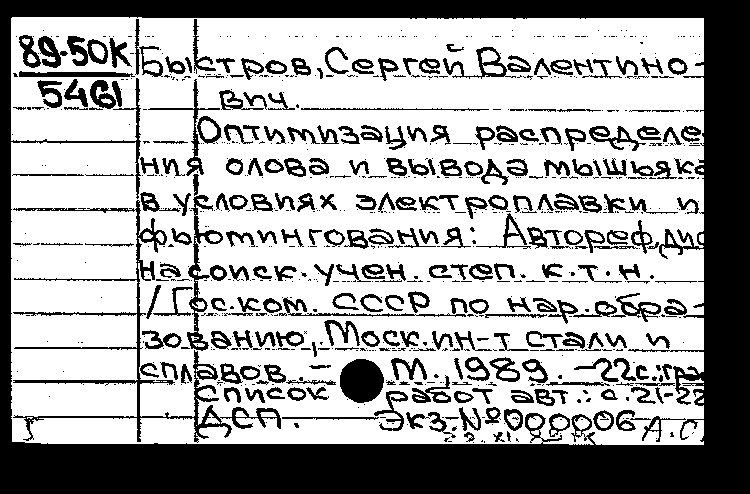 89-50К
5461
Быстров, Сергей Валентино-
вич.
Оптимизация распределе
ния олова и вывода мышьяка
в условиях электроплавки и
фьюмингования: Автореф. дис
на соиск. учен. степ. к.т.н.
/ Гос. ком. СССР по нар. обра-
зованию, Моск. ин-т стали и
сплавов. - М., 1989. - 22 с.: гра
Список работ авт.: с. 21-22
ДСП. Экз. № 000006 А.О.